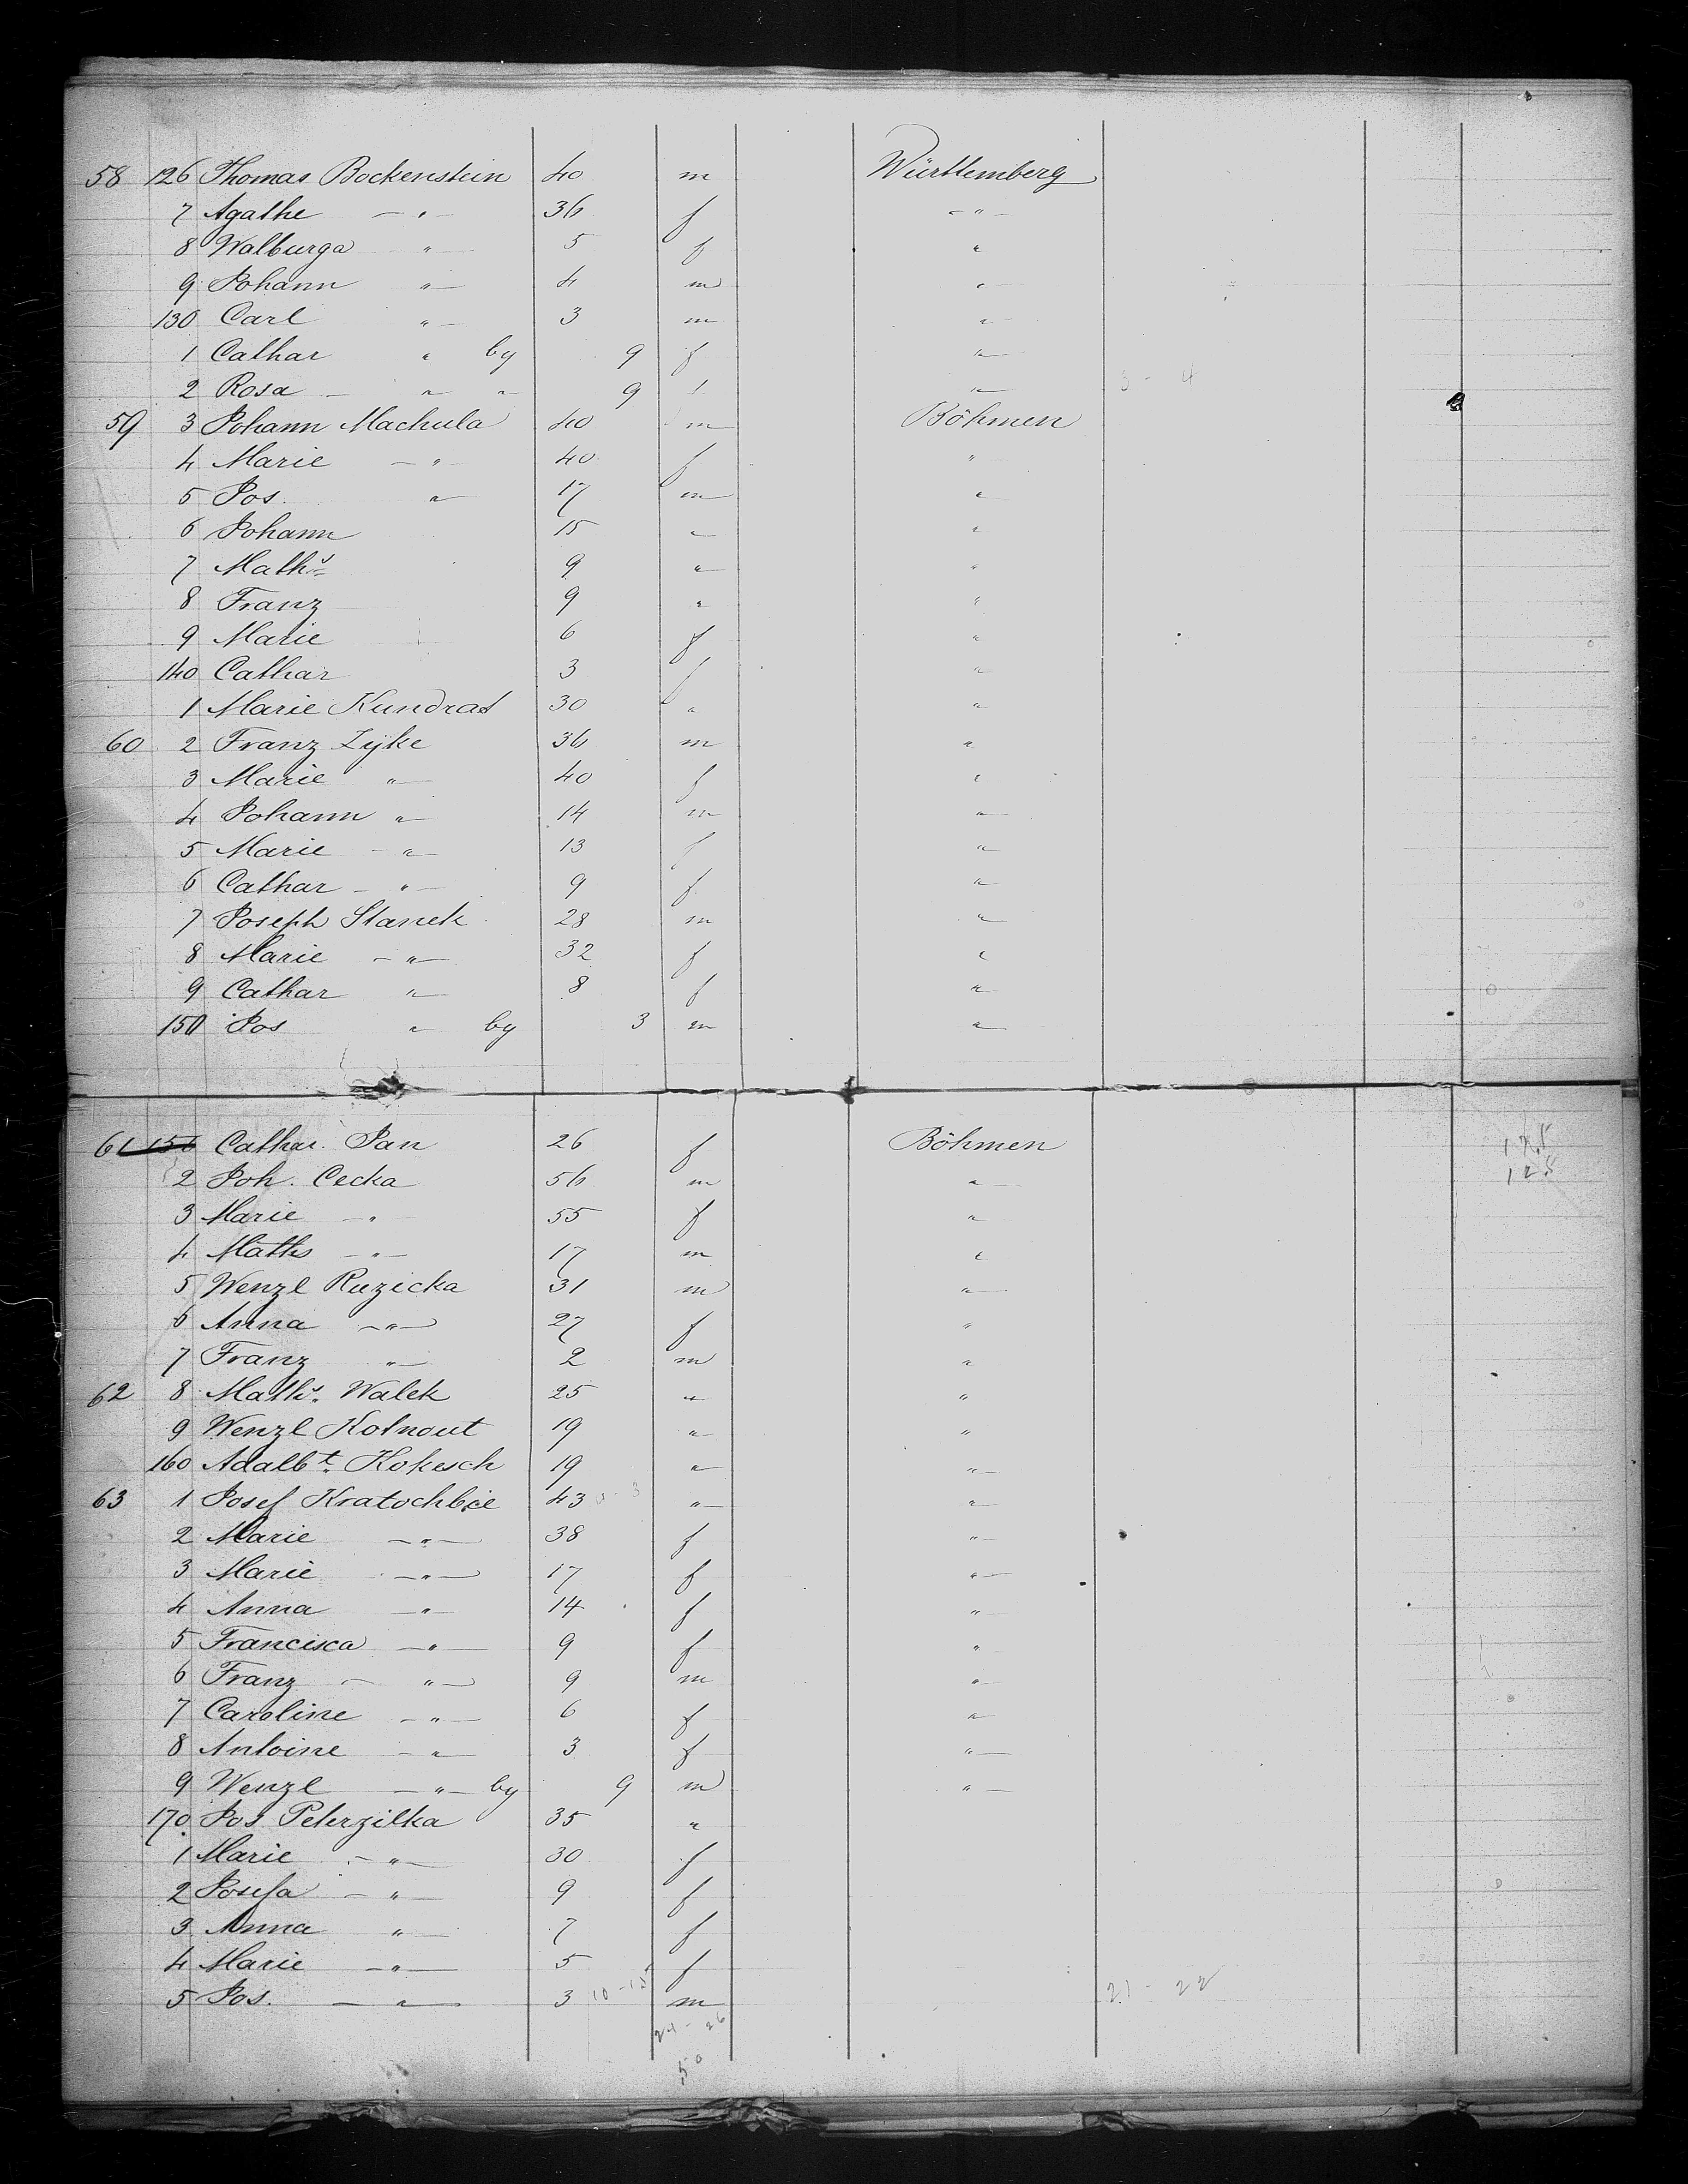 58 126 Thomas Bockenstein 40 m Württemberg
7 Agathe — " — 36 f — " —
8 Walburga " 5 f "
9 Johann " 4 m "
130 Carl " 3 m "
1 Cathar " by 9 f "
2 Rosa — " " 9 f " 3 - 4
59 3 Johann Machula 40 m Böhmen
4 Marie — " 40 f "
5 Jos. " 17 m "
6 Johann 15 " "
7 Maths 9 " "
8 Franz 9 " "
9 Marie 6 f "
140 Cathar 3 f "
1 Marie Kundrat 30 " "
60 2 Franz Zyke 36 m "
3 Marie " 40 f "
4 Johann " 14 m "
5 Marie — " 13 f "
6 Cathar — " — 9 f "
7 Joseph Stanek 28 m "
8 Marie — " — 32 f "
9 Cathar " 8 f "
150 Jos " by 3 m "
61 151 Cathar. Jan 26 f Böhmen
2 Joh. Cecka 56 m "
3 Marie — " 55 f "
4 Maths — " — 17 m "
5 Wenzl Ruzicka 31 m "
6 Anna — " — 27 f "
7 Franz " 2 m "
62 8 Maths. Walek 25 " "
9 Wenzl Kolnout 19 " "
160 Adalbt. Kokesch 19 " "
63 1 Josef Kratochbie 43 " "
2 Marie — " — 38 f "
3 Marie — " — 17 f "
4 Anna — " 14 f "
5 Francisca — " — 9 f "
6 Franz — " — 9 m "
7 Caroline — " — 6 f "
8 Antoine — " 3 f "
9 Wenzl — " — by 9 m "
170 Jos Peterzilka 35 "
1 Marie — " — 30 f
2 Josefa — " — 9 f
3 Anna " 7 f
4 Marie — " — 5 f
5 Jos. — " — 3 10 - 15 m 21 - 22
24 - 26
50